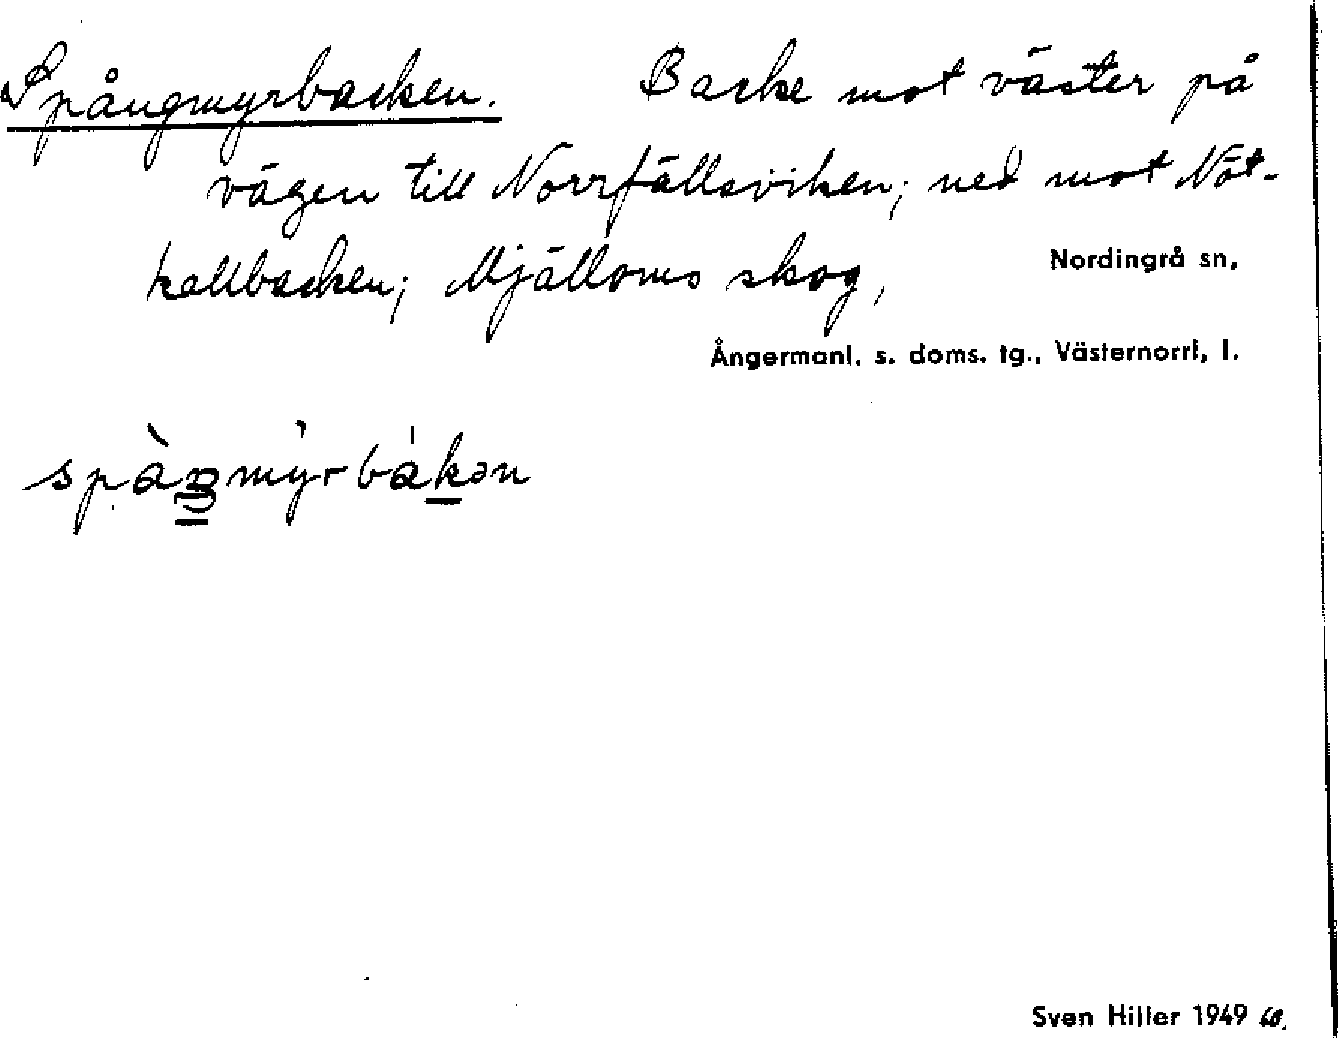 Spångmyrbacken. Backe mot väster på
vägen till Norrfällsviken; ned mot Nöt-
hallbacken; Mjälloms skog,
Nordingrå sn,
Ångermanl. s. doms. tg., Västernorrl, l.
spàŋmy̓rbákən
Sven Hiller 1949